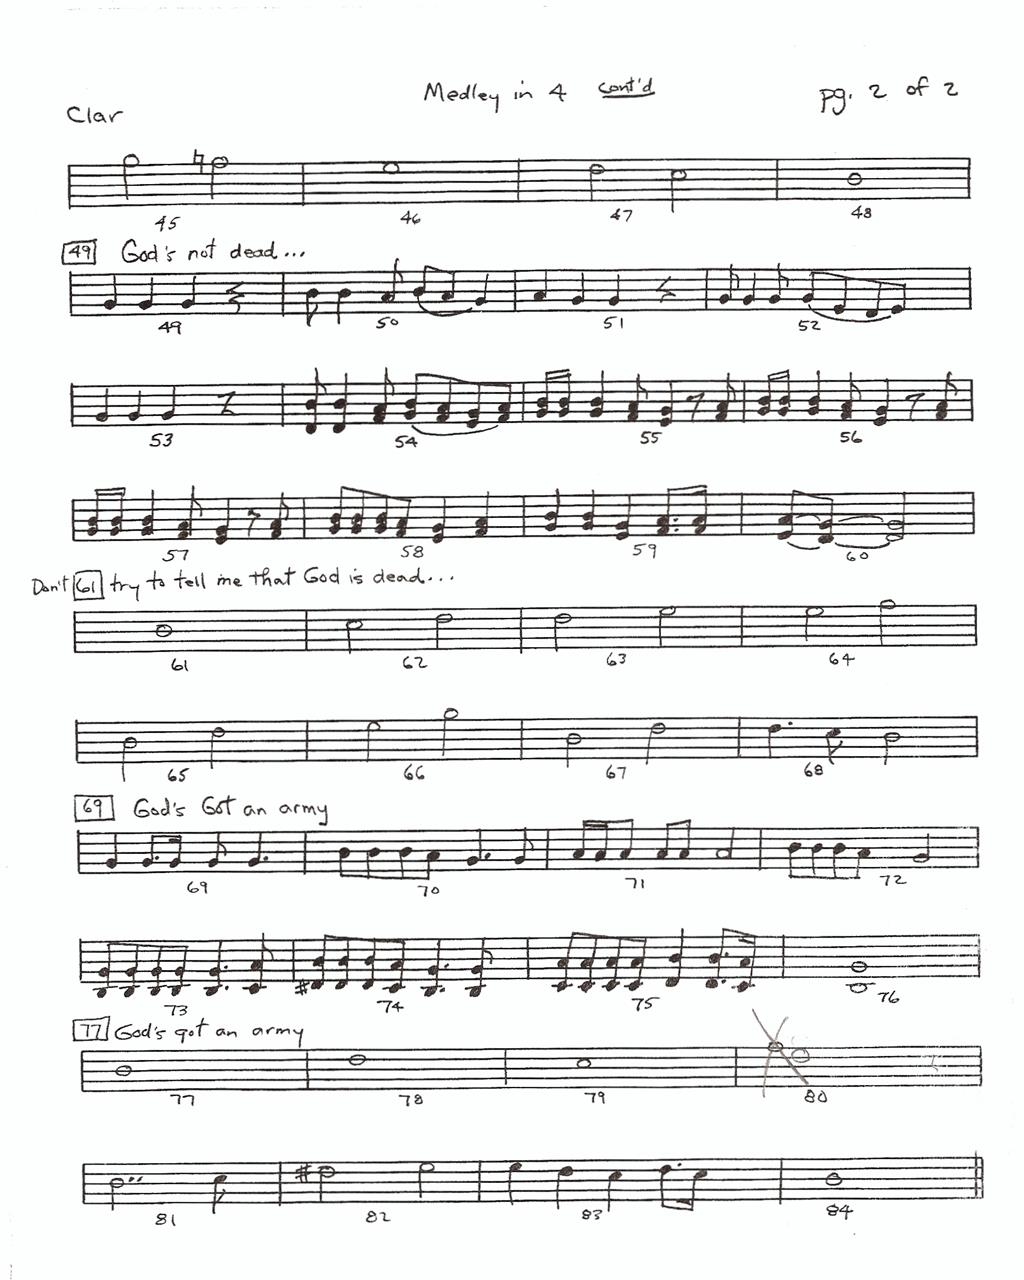 Medley in 4 cont'd pg. 2 of 2
Clar
45 46 47 48
49 God's not dead...
49 50 51 52
53 54 55 56
57 58 59 60
Don't 61 try to tell me that God is dead...
61 62 63 64
65 66 67 68
69 God's Got an army
69 70 71 72
73 74 75 76
77 God's got an army
77 78 79 80
81 82 83 84